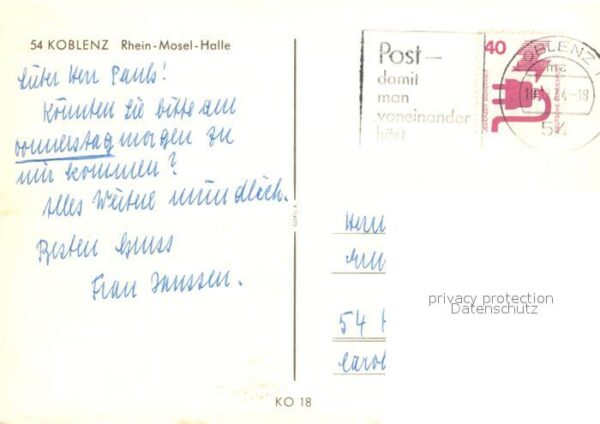 54 KOBLENZ Rhein-Mosel-Halle
Lieber Herr Pauls!
Könnten Sie bitte am
Donnerstag morgen zu
mir kommen?
Alles Weitere mündlich.
Besten Gruss
Frau Janssen.
Post –
damit
man
voneinander
hört
40
KOBLENZ 1
-18
54
Herrn
54 K
privacy protection
Datenschutz
KO 18